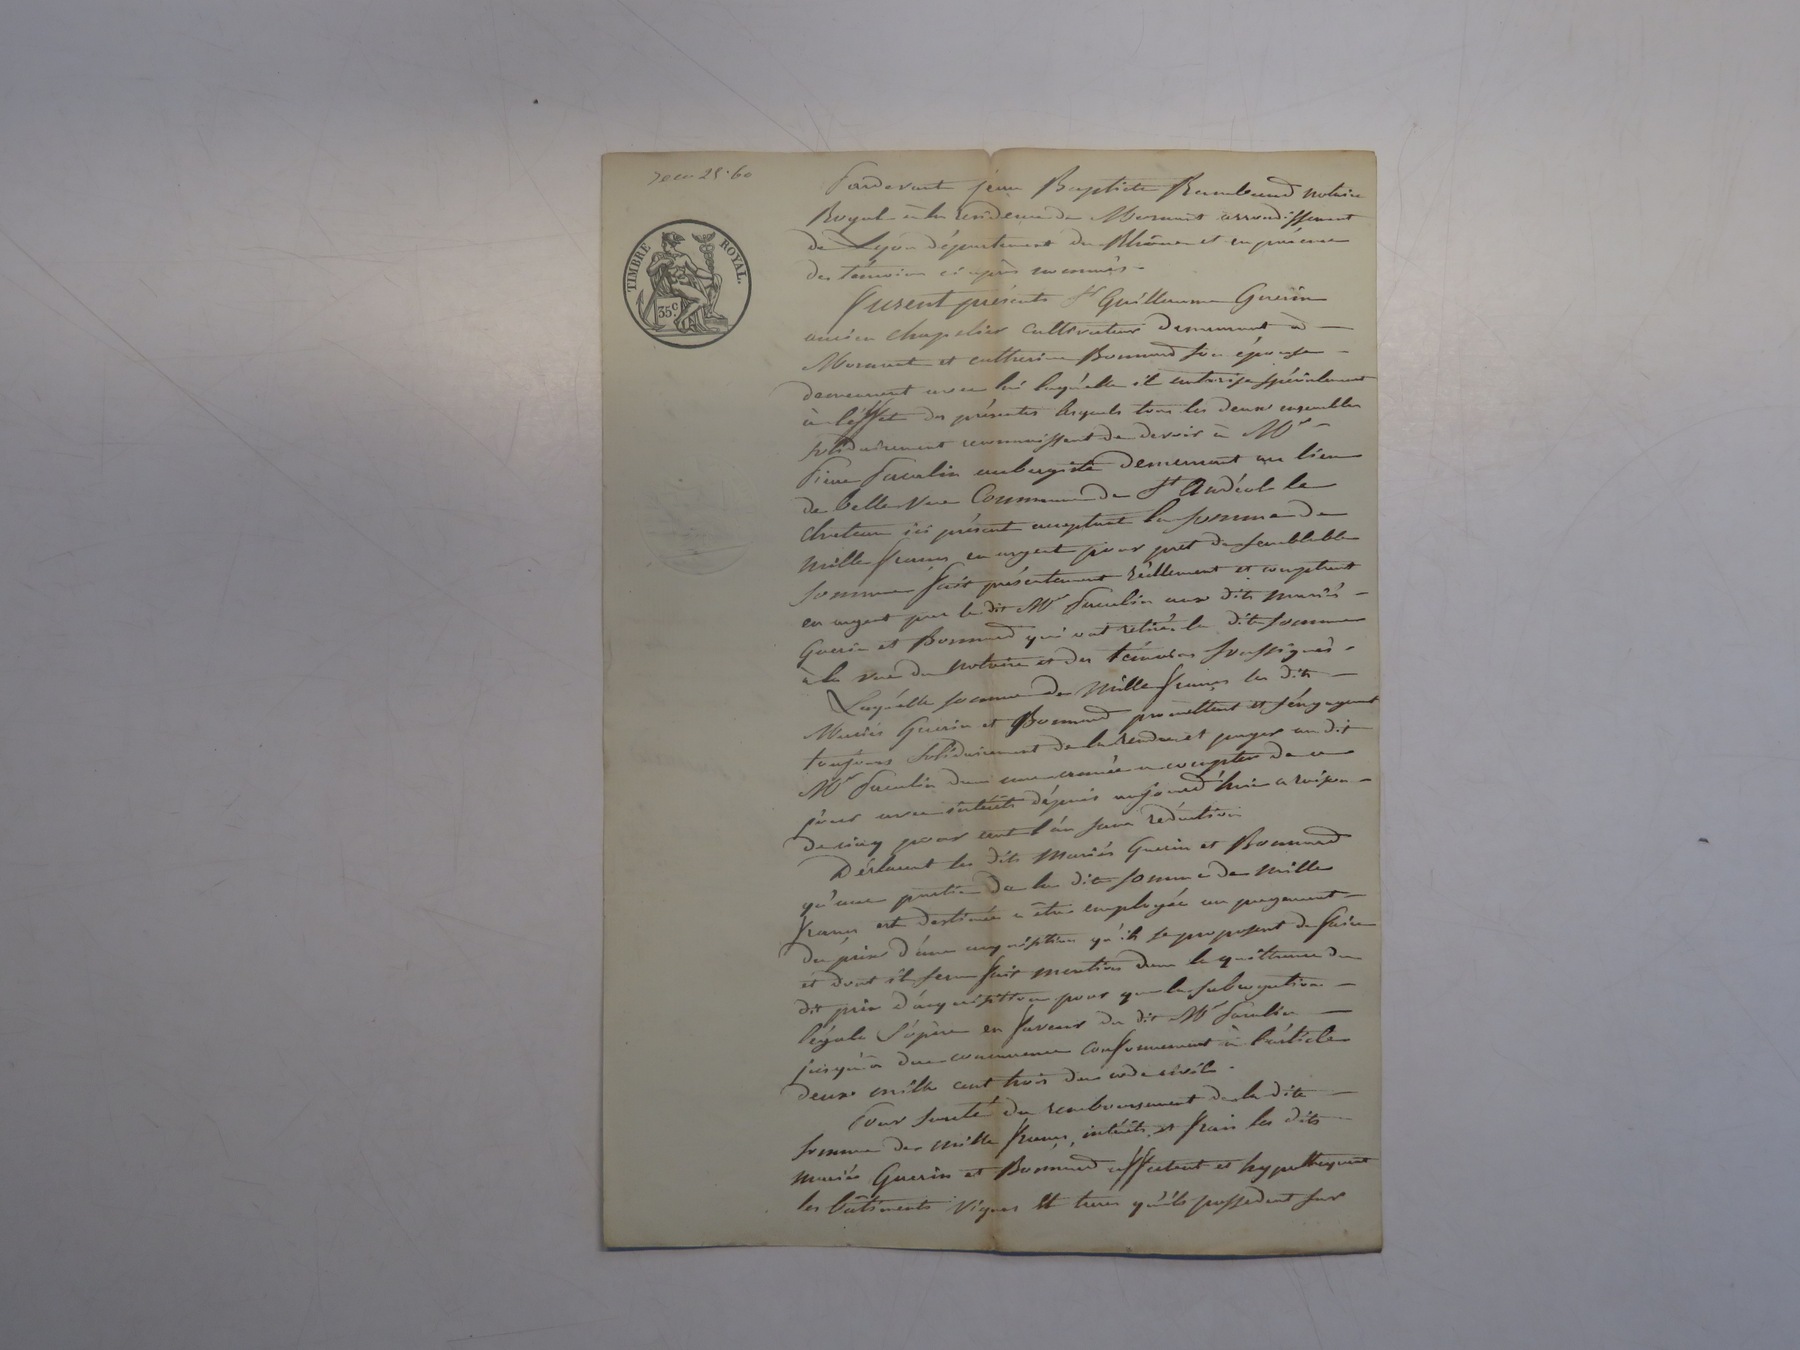 TIMBRE ROYAL.
35c.
Pardevant jean Baptiste Rambaud notaire
Royal à la residence de Mornant arrondissement
de Lyon département du Rhône et en présence
des témoins ci après nommés.
Furent présents Sr Guillaume Guerin
ancien chapelier cultivateur demeurant à
Mornant et catherine Bonnard son épouse
demeurant avec lui laquelle il autorise spécialement
à l'effet des présentes lesquels tous les deux ensembles
solidairement reconnaissent de devoir à Mr
Pierre aubergiste demeurant au lieu
de bellevue Commune de St Andéol le
chateau ici présent acceptant la somme de
mille francs en argent pour pret de semblable
somme fait présentement réellement et comptant
en argent par le dit Mr aux dits mariés
Guerin et Bonnard qui ont retiré la dite somme
à la vue du notaire et des témoins soussignés.
Laquelle somme de mille francs les dits
Mariés Guerin et Bonnard promettent et s'engagent
toujours solidairement de la rendre et payer au dit
Mr dans une année a compter de ce
jour avec intérêts dépuis aujourd'hui a raison
de cinq pour cent l'an sans réduction
Déclarent les dits Mariés Guerin et Bonnard
qu'une partie de la dite somme de mille
francs est destinée a être employée au payement
du prix d'une acquisition qu'ils se proposent de faire
et dont il sera fait mention dans la quittance du
dit prix d'acquisition pour que la subrogation
légale s'opère en faveur du dit Mr
jusqu'à due concurrence conformement à l'article
deux mille cent trois du code civil.
Pour sureté du remboursement de la dite
somme de mille francs, intérêts et frais les dits
mariés Guerin et Bonnard affectent et hypothequent
les bâtiments vignes et terres qu'ils possedent sur